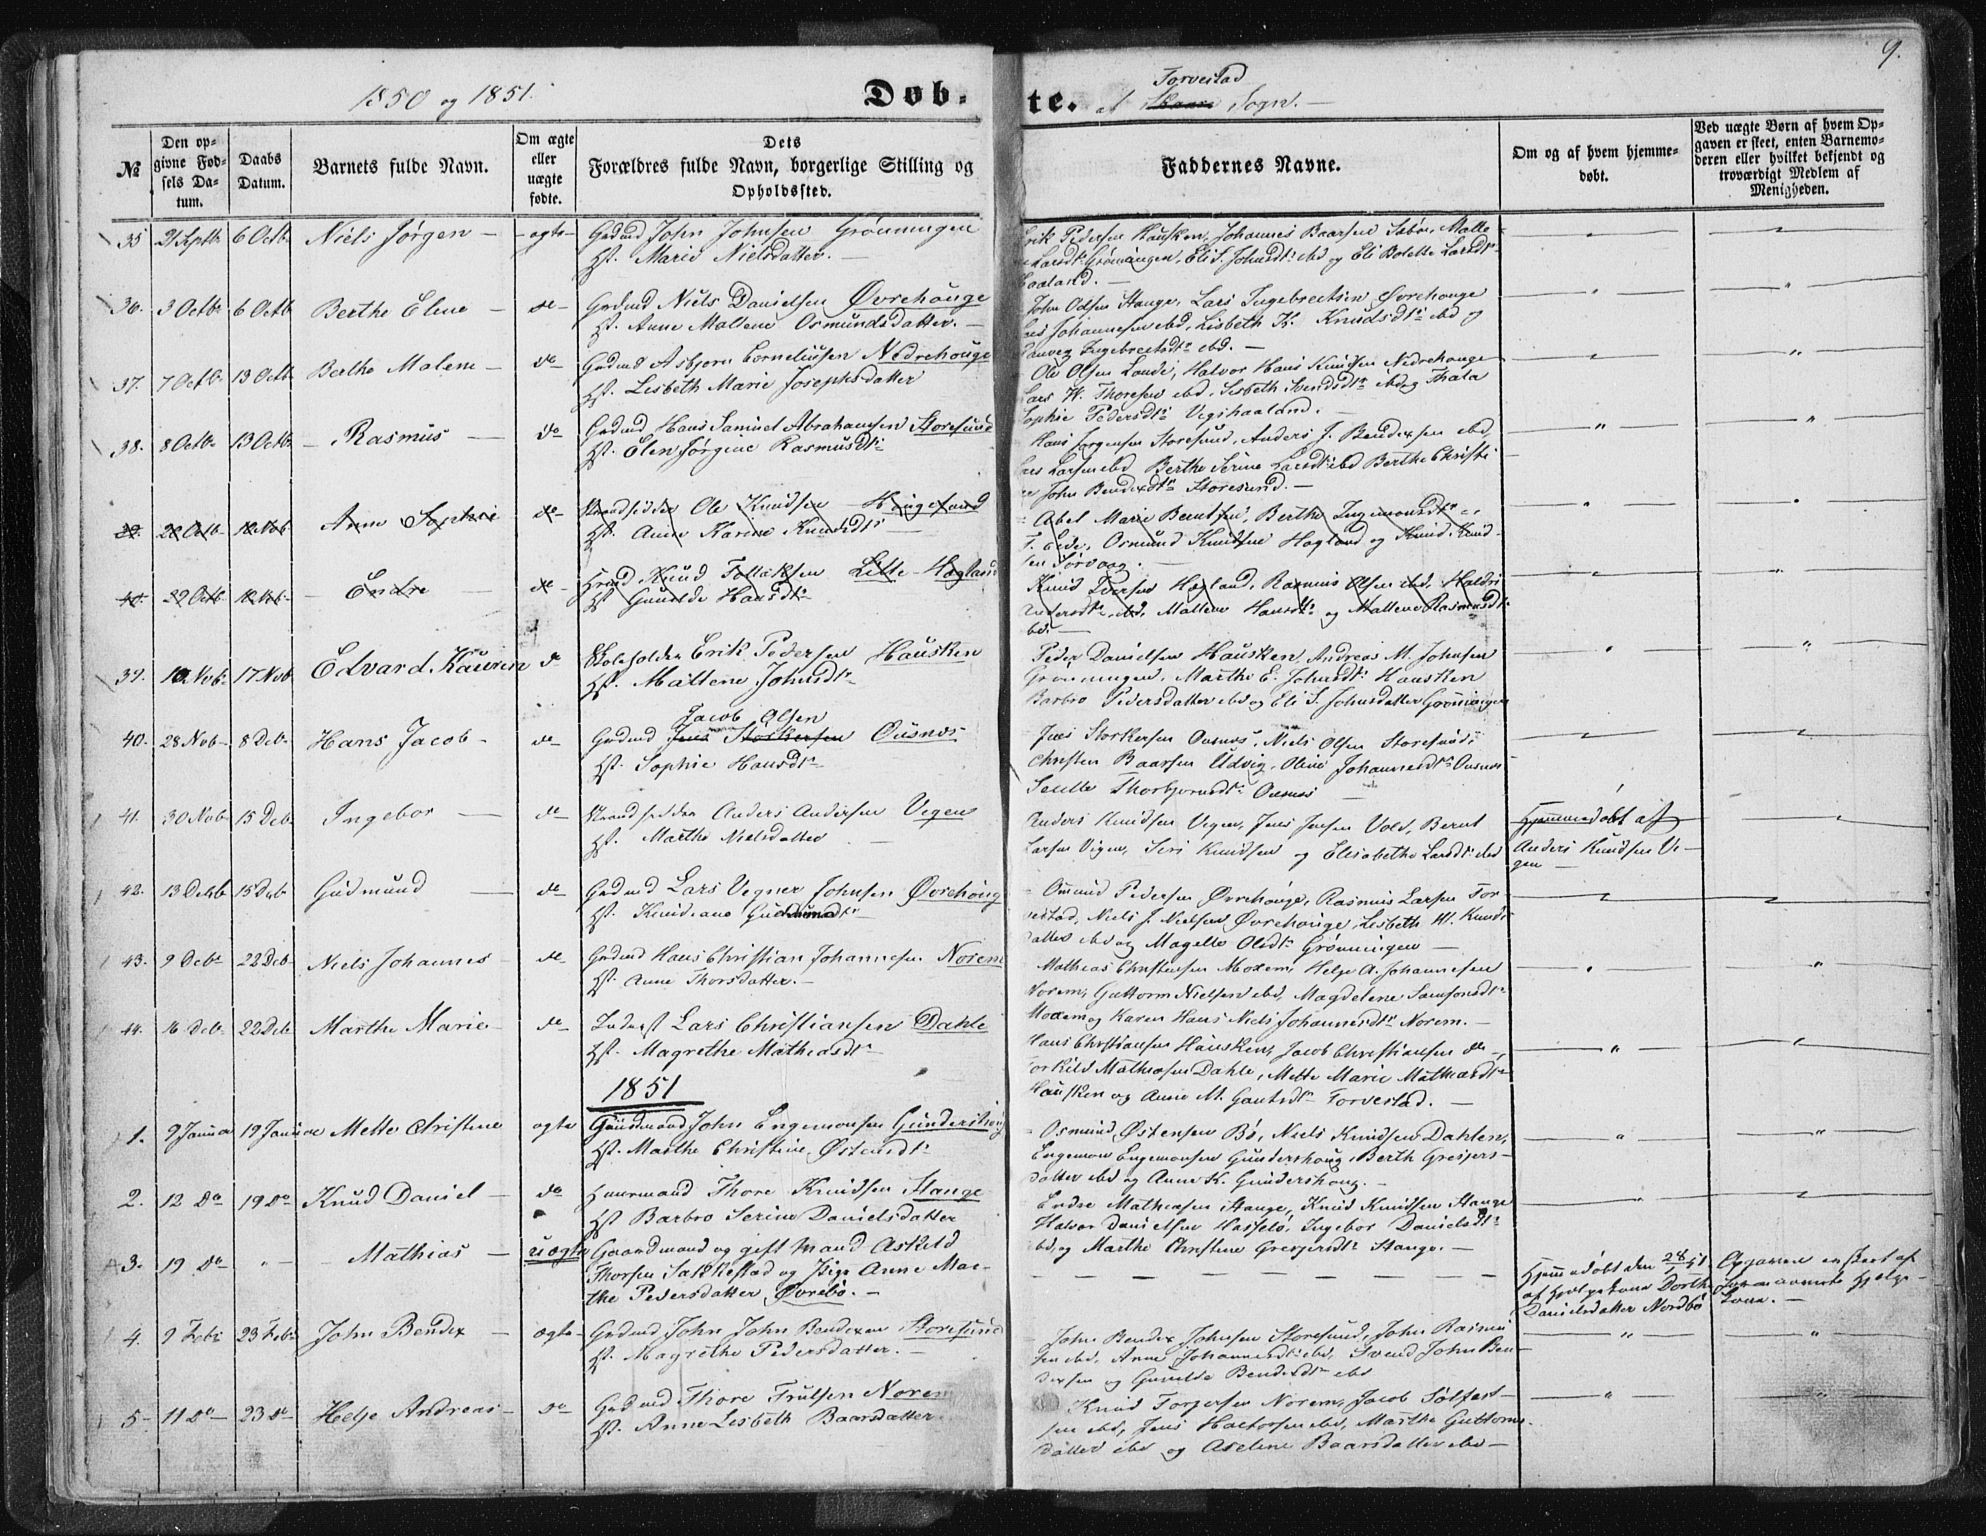 9.
1850 og 1851.
Døb-
te. af Torvestad Sogn.
№
Den opgivne Fødsels Datum.
Daabs Datum.
Barnets fulde Navn.
Om ægte eller uægte fødte.
Dets
Forældres fulde Navn, borgerlige Stilling og
Opholdssted.
Faddernes Navne.
Om og af hvem hjemmedøbt.
Ved uægte Børn af hvem Opgaven er skeet, enten Barnemoderen eller hvilket bekjendt og troværdigt Medlem af Menigheden.
35 21 Septb 6 Octb. Niels Jørgen ægte Grdmd John Johnsen Grønningen
Hst. Marie Nielsdatter.
Erik Pedersen Hausken, Johannes Baarsen Sæbø, Malle
Larsdtr Grønningen, Eli S. Johnsdtr ibd og Eli Bolette Larsdtr
Haaland.
36. 3 Octb. 6 Octb Berthe Elene do Grdmd Niels Danielsen Øvrehouge
Hst. Anne Maltene Osmundsdatter.
John Odsen Stange, Lars Ingebretsen Øvrehouge
Johannesen ibd, Lisbeth K. Knudsdtr ibd og
Ingebretsdtr ibd.
37. 7 Octb. 13 Octb Berthe Malene do Grdmd Asbjørn Corneliusen Nedrehouge
Hst. Lisbeth Marie Josephsdatter
Ole Olsen Lande, Halvor Hans Knudsen Nedrehouge
Lars W. Thoresen ibd, Lisbeth Svendsdtr ibd og Thala
Sophie Pedersdtr Vigshaaland.
38. 8 Octb. 13 Octb Rasmus do Grdmd Hans Samuel Abrahamsen Storesund
Hst. Elen Jørgine Rasmusdtr
Hans Jørgensen Storesund, Anders J. Bendixsen ibd,
Lars Larsen ibd Berthe Serine Larsdtr ibd Berthe Christi
ne John Bendixdtr Storesund.
39. 28 Octb 10 Nvb Anne Sophie do Strandsidder Ole Knudsen Haugesund
Hst. Anne Karine Knudsdtr
Abel Marie Berntsen, Berthe Ingemonsdtr
F. Eide, Osmund Knudsen Hagland og Knud Knud-
sen Sørvaag.
40. 29 Octb 10 Nvb Endre do Grmd Knud Tollaksen Lille Hagland
Hst Gunilde Hansdtr
Knud Iversen Hagland, Rasmus Olsen ibd. Haldri
Pedersdtr ibd, Maltene Hansdtr og Maltene Rasmusdtr
ibd.
39. 10 Nvb. 17 Nvb Edvard Kaurin do Skoleholder Erik Pedersen Hausken
Hst. Maltene Johnsdtr
Peder Danielsen Hausken, Andreas M. Johnsen
Grønningen, Marthe E. Johnsdtr Hausken
Barbro Pedersdatter ibd og Eli S. Johnsdatter Grønningen
40. 28 Nvb 8 Deb. Hans Jacob do Grdmd Jacob Olsen
Jens Storkersen Ousnes
Hst. Sophie Hansdtr
Jens Storkersen Ousnes, Niels Olsen Storesund,
Christen Baarsen Udvig, Oline Johannesdtr Ousnes
Thorbjørnsdtr Ousnes
41. 30 Nvb 15 Deb Ingebor do Strandsidder Anders Andersen Vigen
Hst. Marthe Nielsdatter
Anders Knudsen Vigen, Jens Jensen Vold, Bernt
Larsen Vigen, Siri Knudsen og Elisabethe Larsdtr ibd
Hjemmedøbt af
Anders Knudsen Vi-
gen
42. 13 Decb 15 Deb Gudmund do Grdmd Lars Vegner Johnsen Øvrehoug
Hst. Knudiane Gudmundsdtr
Omund Pedersen Øvrehouge, Rasmus Larsen Tor
vestad, Niels J. Nielsen Øvrehouge, Lisbeth W. Knuds
datter ibd og Magele Olsdtr Grønningen
43. 9 Debr 22 Deb Niels Johannes do Grdmd Hans Christian Johannesen Norem
Hst. Anne Thorsdatter.
Mathias Christensen Moxem, Helge A. Johannesen
Norem, Guttorm Nielsen ibd, Magdelene Samsonsdtr
Moxem og Karen Hans Niels Johannesdtr Norem.
44. 16 Deb. 22 Deb Marthe Marie do Inderst Lars Christiansen Dahle
Hst. Magrethe Mathiasdtr
Hans Christiansen Hausken, Jacob Christiansen do,
Torkild Mathiasen Dahle, Mette Marie Mathiasdtr
Hausken og Anne M. Gautsdtr Torvestad.
1851
1. 9 Januar 19 Januar Mette Christine ægte Gaardmand John Engemonsen Gundershoug
Hst. Marthe Christine Østensdtr
Osmund Østensen Bø, Niels Knudsen Dahlen,
Engemon Engemonsen Gundershoug, Berth Gregers-
datter ibd og Anne K. Gundershoug.
2. 12 Do 19 Do Knud Daniel do Huusmand Thore Knudsen Stange
Hst Barbro Serine Danielsdatter
Endre Mathiasen Stange, Knud Knudsen Stange
Halvor Danielsen Hasselø, Ingebor Danielsdtr
ibd, og Marthe Christine Gregersdtr Stange.
3. 19 Do " Mathias uægte Gaardmand og gift Mand Askeld
Thorsen Sakkestad og Pige Anne Mar-
the Pedersdatter Øvrebø.
Hjemmedøbt den 28/1 51
af Hjelpekone Dorthe
Danielsdatter Nordbø
Opgaven er skeet af
Hjelpe-
kone.
4. 9 Febr 23 Febr John Bendix ægte Grdmd John John Bendixen Storesund
Hst. Magrethe Pedersdatter.
John Bendix Johnsen Storesund, John Rasmu
sen ibd, Anne Johannesdtr ibd, Svend John Ben-
dixsen og Gunilde Bendixdtr ibd
5 11 Do 23 Do Helje Andreas do Grdmd Thore Trulsen Norem
Hst. Anne Lisbeth Baarsdatter.
Knud Torgersen Norem, Jacob Sølfest-
sen ibd, Jens Halvorsen ibd, Marthe Guttorms
datter ibd og Aselene Baarsdatter ibd